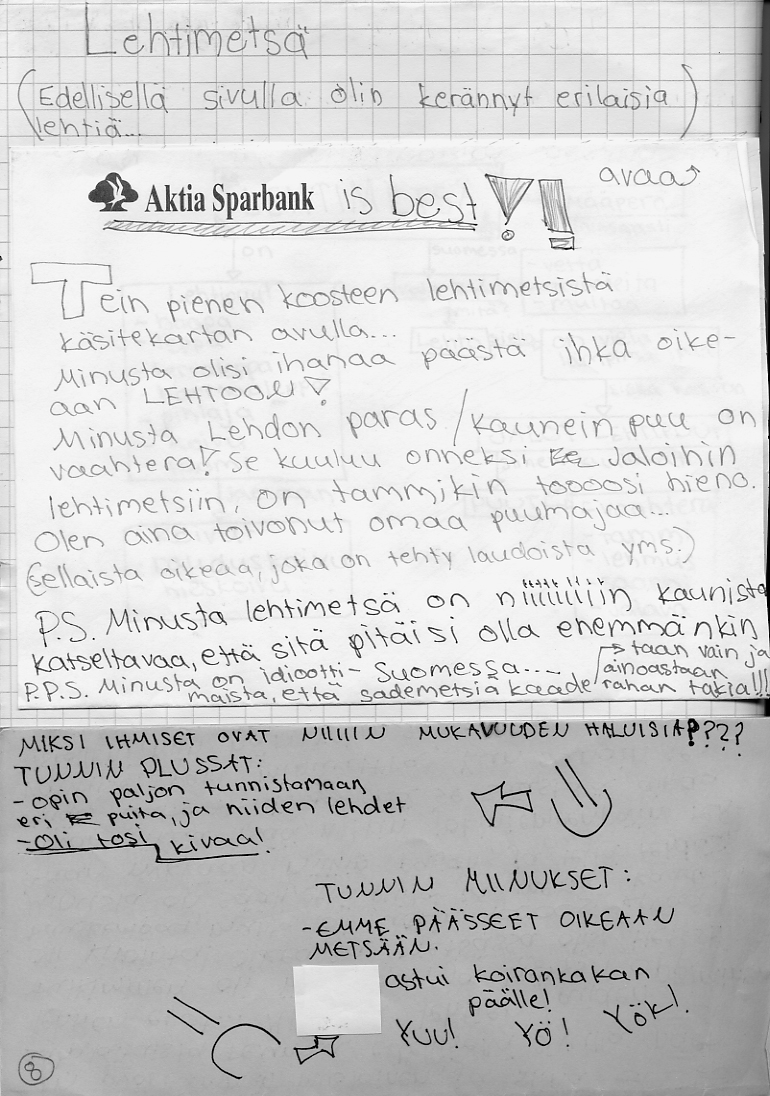 Lehtimetsä
(Edellisellä sivulla olin kerännyt erilaisia
lehtiä...)
avaa
Aktia Sparbank is best!!
Tein pienen koosteen lehtimetsistä
käsitekartan avulla...
Minusta olisi ihanaa päästä ihka oike-
aan LEHTOON!
Minusta Lehdon paras/kaunein puu on
vaahtera! Se kuuluu onneksi Jaloihin
lehtimetsiin, on tammikin toooosi hieno.
Olen aina toivonut omaa puumajaa...
(Sellaista oikeaa, joka on tehty laudoista yms.)
P.S. Minusta lehtimetsä on niiiiiiiin kaunista
katseltavaa, että sitä pitäisi olla enemmänkin
Suomessa....
P.P.S. Minusta on idiootti-
maista, että sademetsiä kaade
taan vain ja
ainoastaan
rahan takia!!!
MIKSI IHMISET OVAT NIIIIIN MUKAVUUDEN HALUISIA????
TUNNIN PLUSSAT:
-opin paljon tunnistamaan
eri puita, ja niiden lehdet
-Oli tosi kivaa!
TUNNIN MIINUKSET:
-EMME PÄÄSSEET OIKEAAN
METSÄÄN.
astui koirankakan
päälle!
Yuu! Yö! Yök!
8